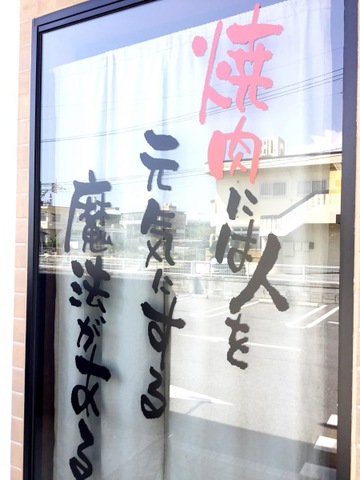 焼肉には人を
元気にする
魔法がある